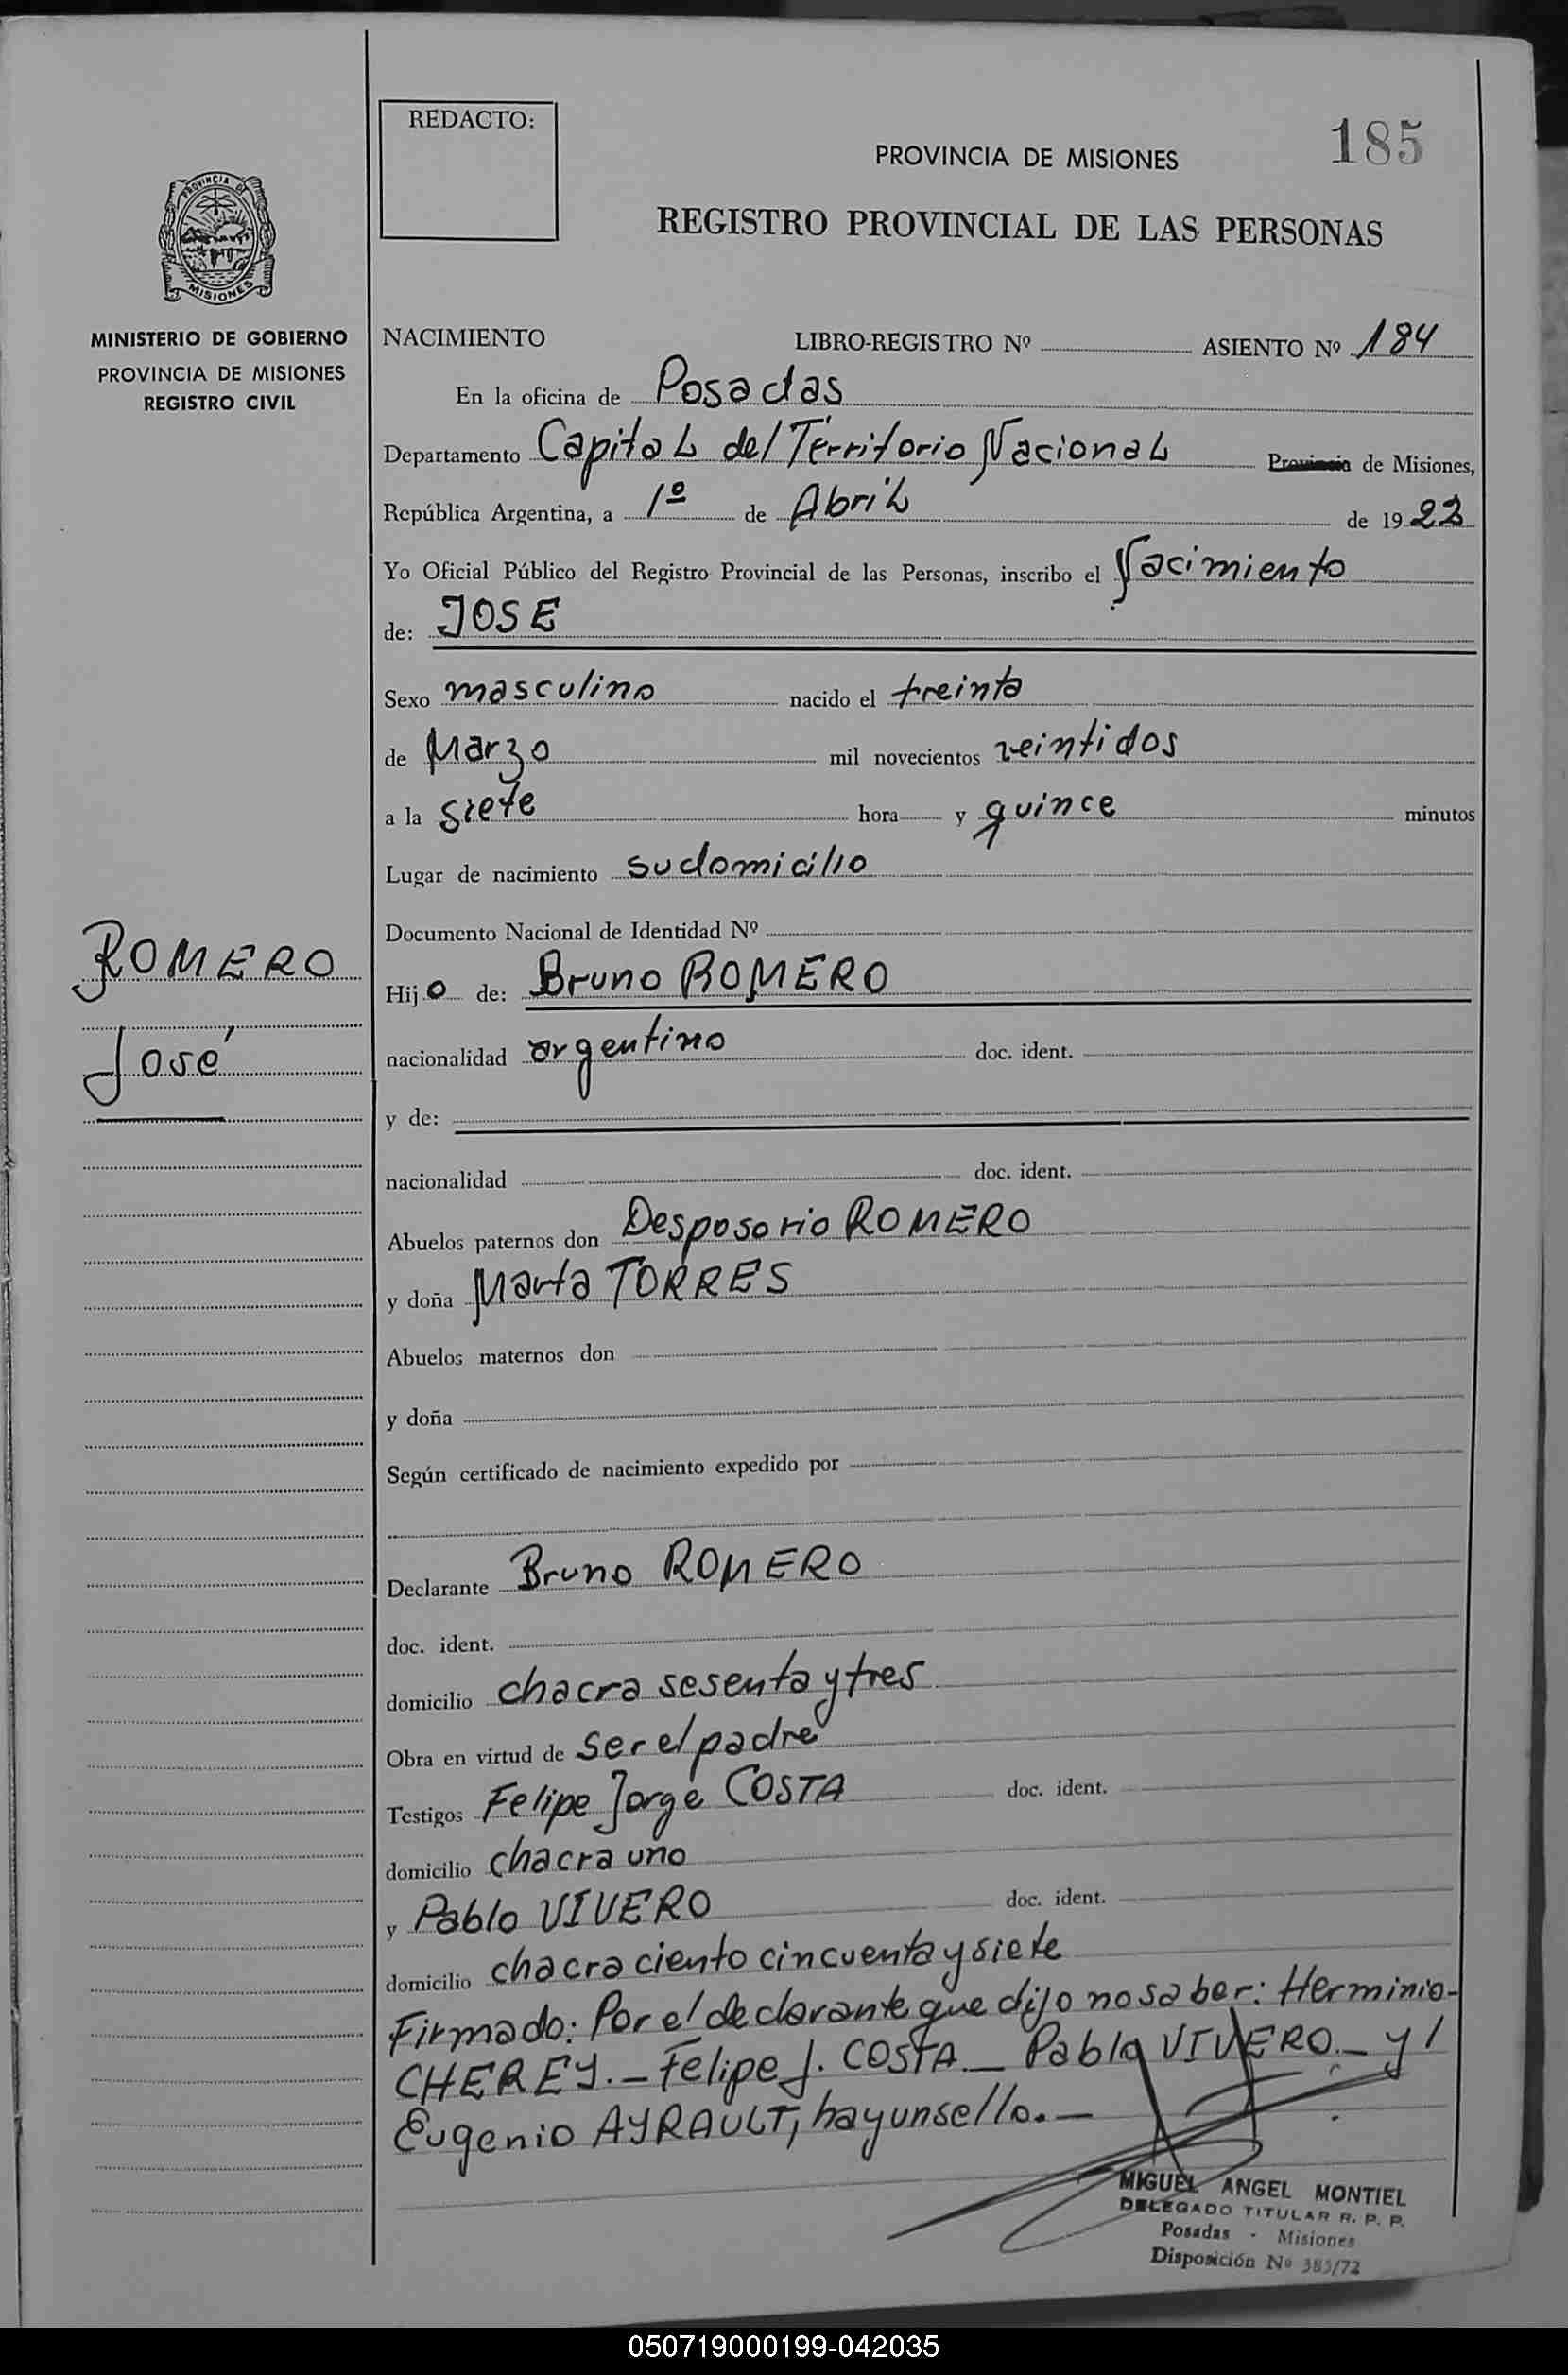 REDACTO:
185
PROVINCIA DE MISIONES
REGISTRO PROVINCIAL DE LAS PERSONAS
PROVINCIA DE
MISIONES
MINISTERIO DE GOBIERNO
PROVINCIA DE MISIONES
REGISTRO CIVIL
NACIMIENTO LIBRO-REGISTRO Nº ASIENTO Nº 184
En la oficina de Posadas
Departamento Capital del Territorio Nacional Provincia de Misiones,
República Argentina, a 1º de Abril de 1922
Yo Oficial Público del Registro Provincial de las Personas, inscribo el Nacimiento
de: JOSE
Sexo masculino nacido el treinta
de Marzo mil novecientos veintidos
a la siete hora y quince minutos
Lugar de nacimiento su domicilio
Documento Nacional de Identidad Nº
ROMERO
José
Hijo de: Bruno ROMERO
nacionalidad argentino doc. ident.
y de:
nacionalidad doc. ident.
Abuelos paternos don Desposorio ROMERO
y doña Marta TORRES
Abuelos maternos don
y doña
Según certificado de nacimiento expedido por
Declarante Bruno ROMERO
doc. ident.
domicilio chacra sesenta y tres
Obra en virtud de ser el padre
Testigos Felipe Jorge COSTA doc. ident.
domicilio chacra uno
y Pablo VIVERO doc. ident.
domicilio chacra ciento cincuenta y siete
Firmado: Por el declarante que dijo no saber: Herminio-
CHEREY.- Felipe J. COSTA.- Pablo VIVERO.- y l
Eugenio AYRAULT, hay un sello.-
MIGUEL ANGEL MONTIEL
DELEGADO TITULAR R. P. P.
Posadas - Misiones
Disposición Nº 385/72
050719000199-042035